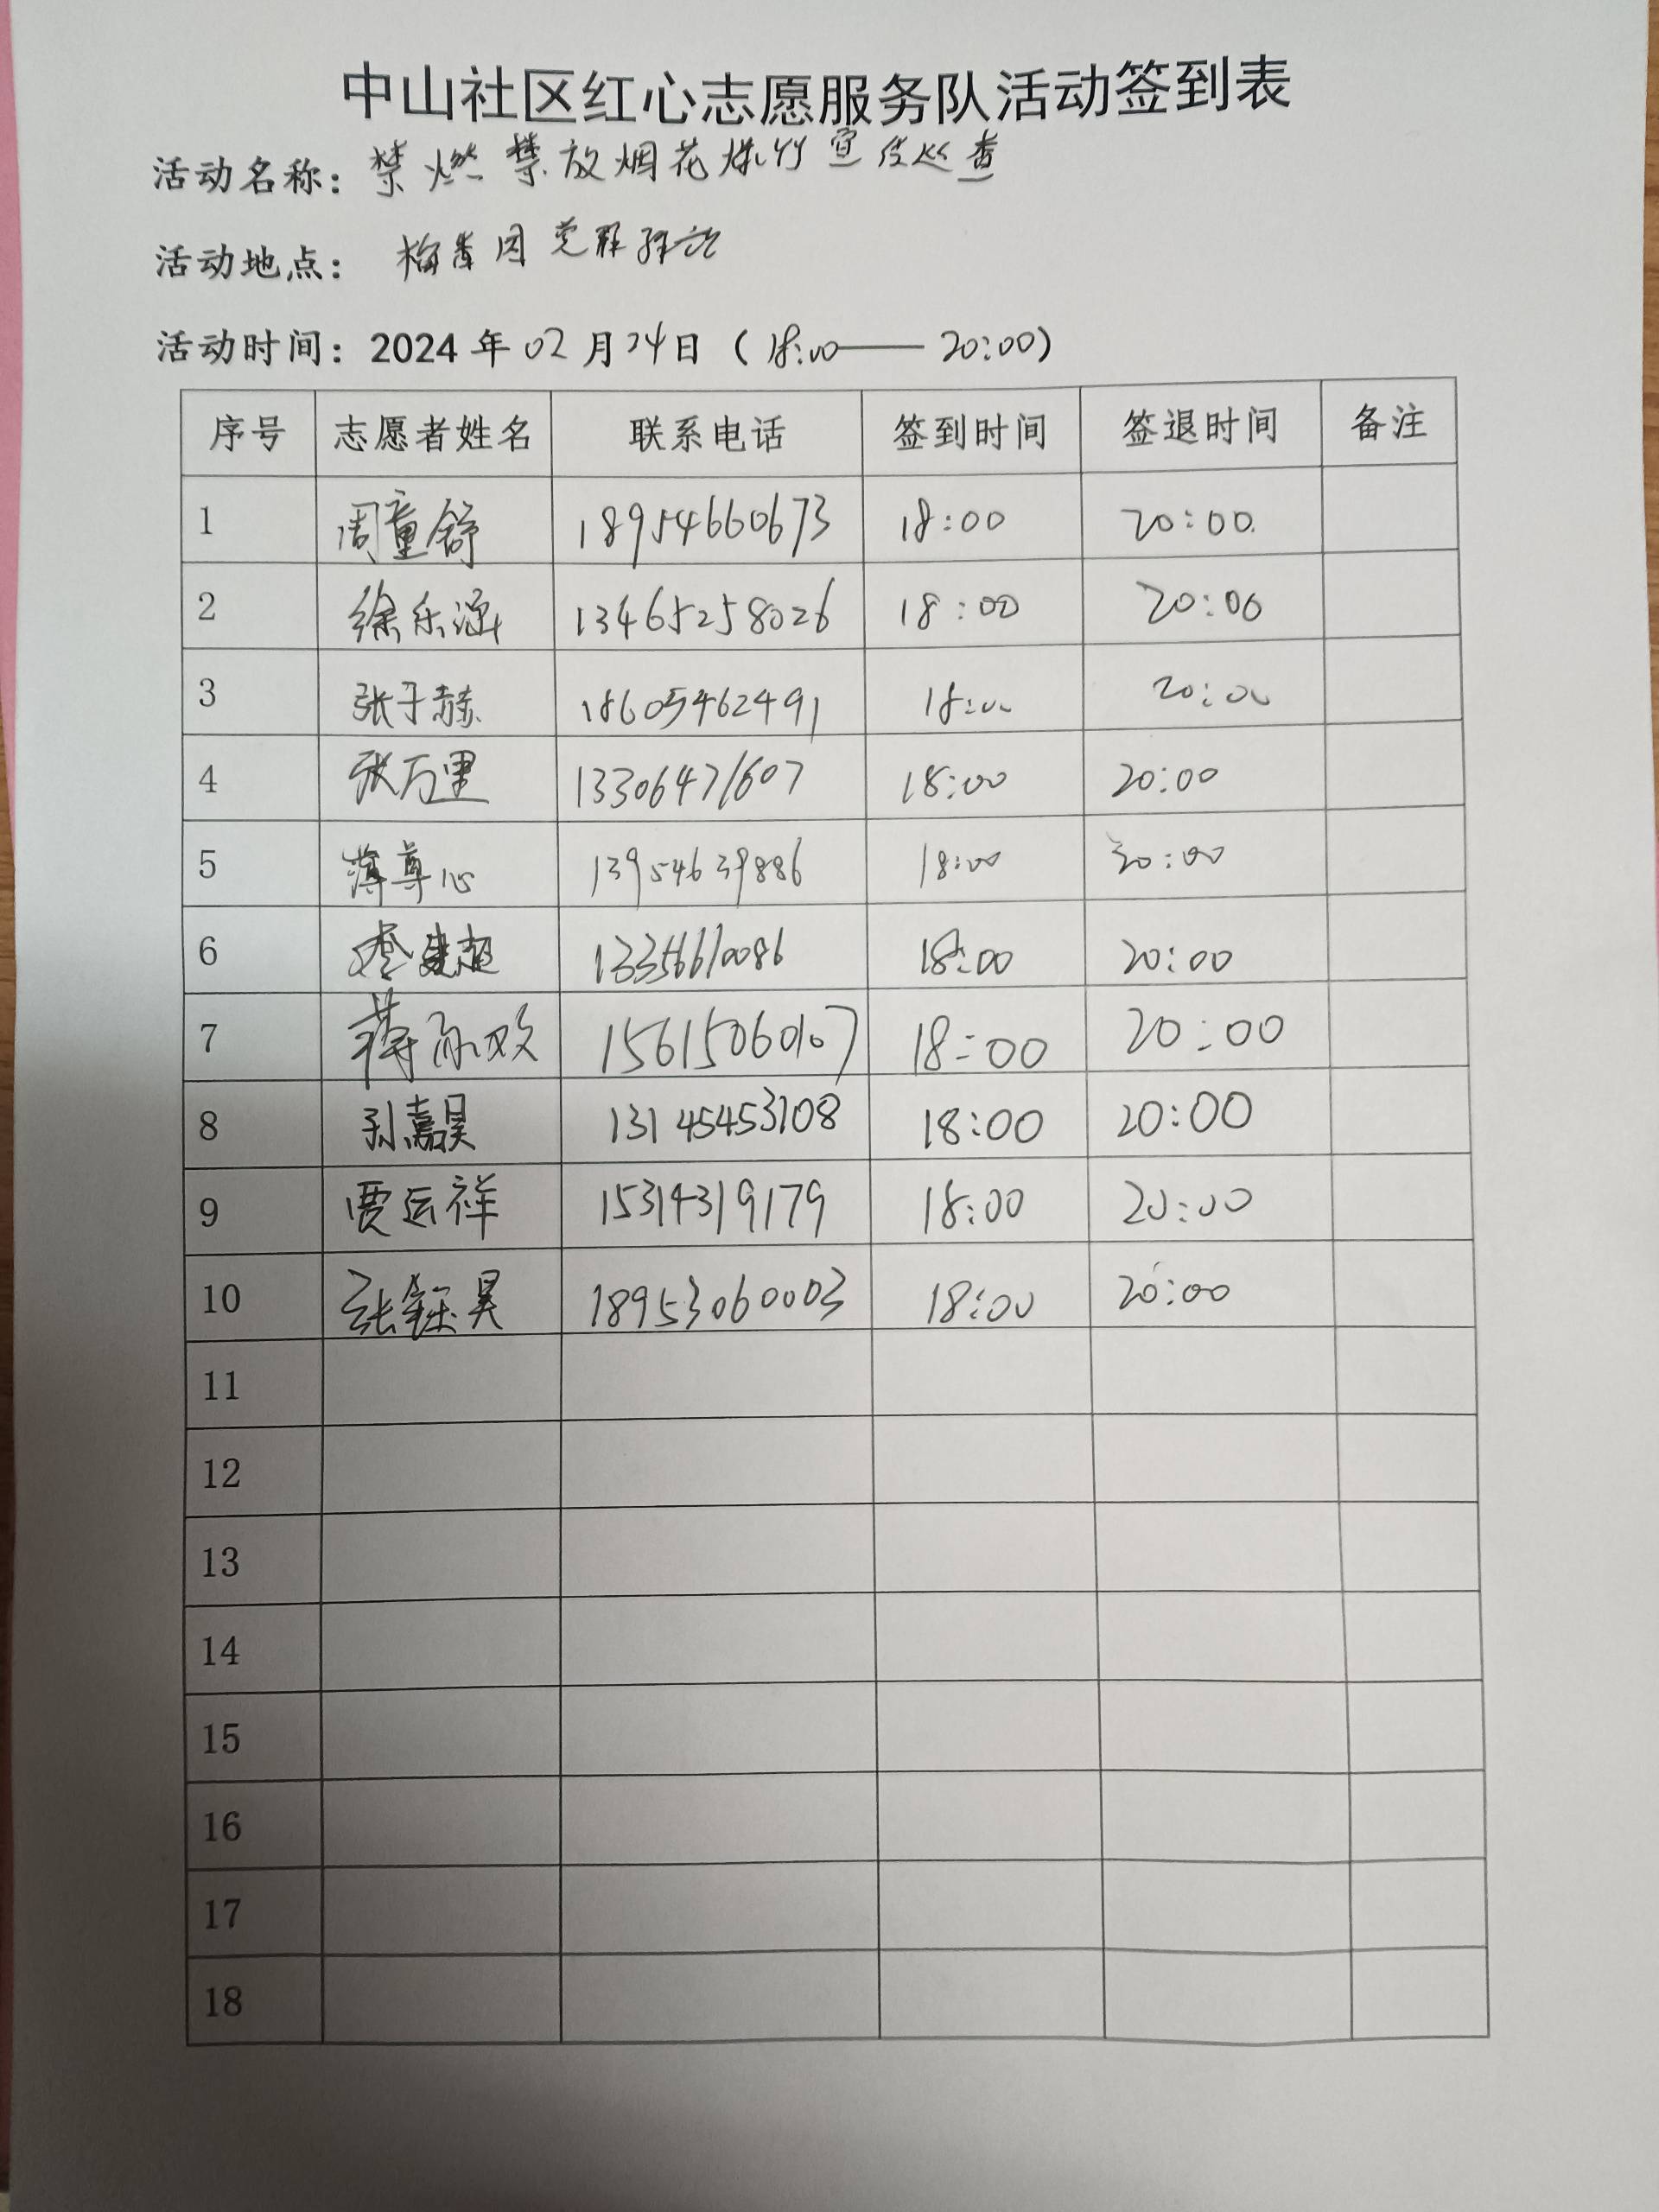 中山社区红心志愿服务队活动签到表
活动名称：禁燃禁放烟花爆竹宣传巡查
活动地点：梅香园党群驿站
活动时间：2024年02月24日（18:00——20:00）
序号 志愿者姓名 联系电话 签到时间 签退时间 备注
1 周童舒 18954660673 18:00 20:00
2 徐乐涵 13465258026 18:00 20:00
3 张子赫 18605462491 18:00 20:00
4 张万里 13306471607 18:00 20:00
5 薄尊心 13954639886 18:00 20:00
6 李建超 13356610086 18:00 20:00
7 蒋 15615060107 18:00 20:00
8 孙嘉昊 13145453108 18:00 20:00
9 贾运祥 15314319179 18:00 20:00
10 张钰昊 18953060003 18:00 20:00
11
12
13
14
15
16
17
18